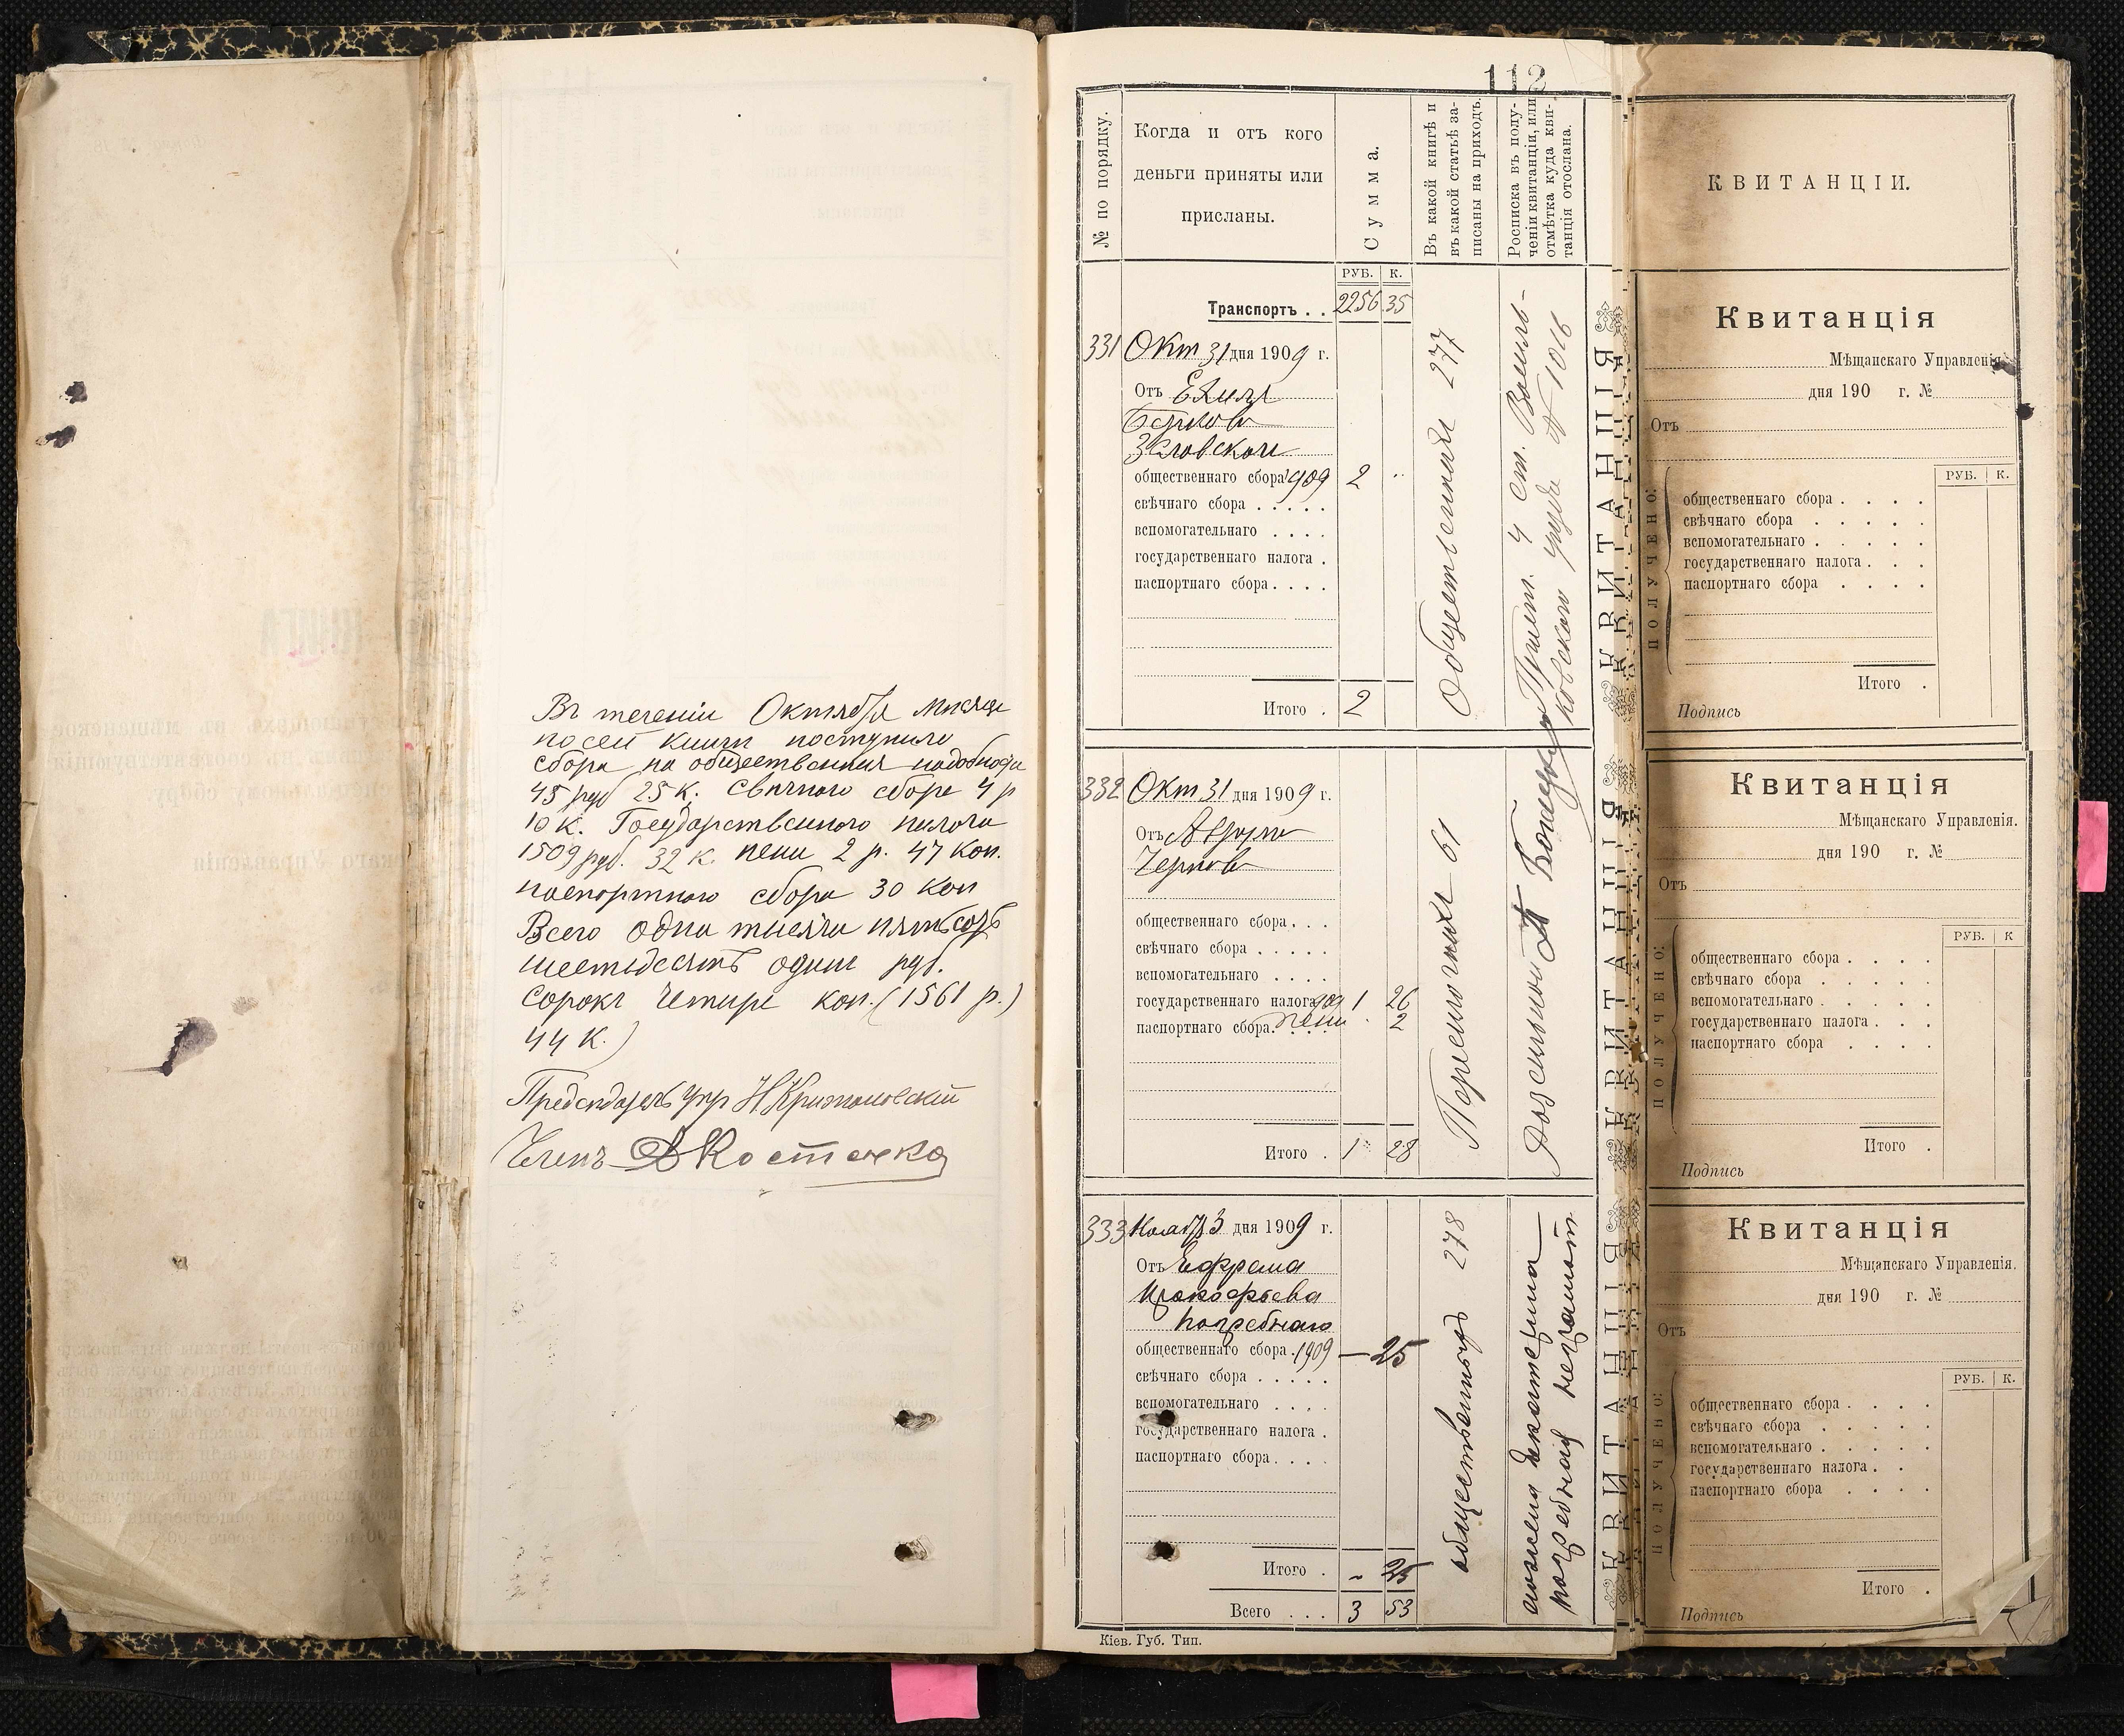 Въ теченіи Октября мѣсяца
по сей книги поступило
сбора на общественныя надобности
45 руб 25 к. Свѣчного сбора 4 р
10 к. Государственного налога
1509 руб. 32 к. пени 2 р. 47 коп.
паспортного сбора 30 коп
Всего одна тысяча пятьсотъ
шестьдесятъ одинъ руб.
сорокъ четыре коп. (1561 р.
44 к.)
Предсѣдатель упр Н Крижановскій
Членъ А Костенко
112
№ по порядку.
Когда и отъ кого
деньги приняты или
присланы.
Сумма.
Въ какой книгѣ и
въ какой статьѣ за-
писаны на приходъ.
Росписка въ полу-
ченіи квитанціи, или
отмѣтка куда кви-
танція отослана.
РУБ. К.
Транспортъ . . 2256 35
331 Окт 31 дня 1909 г.
Отъ
общественнаго сбора 1909 2
свѣчнаго сбора . . . . .
вспомогательнаго . . . .
государственнаго налога .
паспортнаго сбора . . . .
Итого . 2
277
Прист. 4 ст. Василь-
ковского уезда № 1016
332 Окт 31 дня 1909 г.
Отъ
Чернов
общественнаго сбора . . .
свѣчнаго сбора . . . . .
вспомогательнаго . . . .
государственнаго налога 909 1 26
паспортнаго сбора. пени 2
Итого . 1 28
61
333 Ноября 3 дня 1909 г.
Отъ Ефрема
Прокофьева
Погребного
общественнаго сбора . 1909 — 25
свѣчнаго сбора . . . . .
вспомогательнаго . . . .
государственнаго налога .
паспортнаго сбора . . . .
Итого . - 25
Всего . . . 3 53
278
Погребная неграмот
Кіев. Губ. Тип.
КВИТАНЦІЯ
КВИТАНЦІЯ
КВИТАНЦІЯ
КВИТАНЦІИ.
Квитанція
Мѣщанскаго Управленія.
дня 190 г. №
Отъ
РУБ. К.
ПОЛУЧЕНО:
общественнаго сбора . . . .
свѣчнаго сбора . . . . .
вспомогательнаго . . . . .
государственнаго налога . . .
паспортнаго сбора . . . .
Итого .
Подпись
Квитанція
Мѣщанскаго Управленія.
дня 190 г. №
Отъ
РУБ. К
ПОЛУЧЕНО:
общественнаго сбора . . . .
свѣчнаго сбора . . . . .
вспомогательнаго . . . . .
государственнаго налога . . .
паспортнаго сбора . . . .
Итого .
Подпись
Квитанція
Мѣщанскаго Управленія.
дня 190 г. №
Отъ
РУБ. К.
ПОЛУЧЕНО:
общественнаго сбора . . . .
свѣчнаго сбора . . . . .
вспомогательнаго . . . . .
государственнаго налога . .
паспортнаго сбора . . . .
Итого .
Подпись